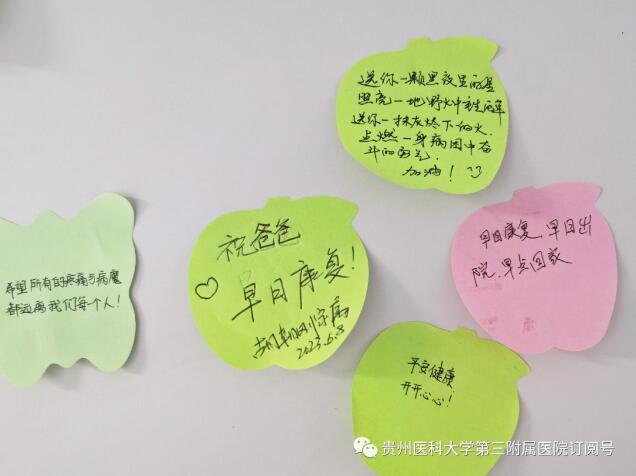 送你一颗黑夜里的星
照亮一地野火中重生的草
送你一抹灰烬下的火
点燃一身病困中奋
斗的勇气.
加油!
祝爸爸
早日康复!
2023.6.8
早日康复、早日出
院、早点回家
希望所有的疼痛与病魔
都远离我们每个人!
平安健康
开开心心!
贵州医科大学第三附属医院订阅号